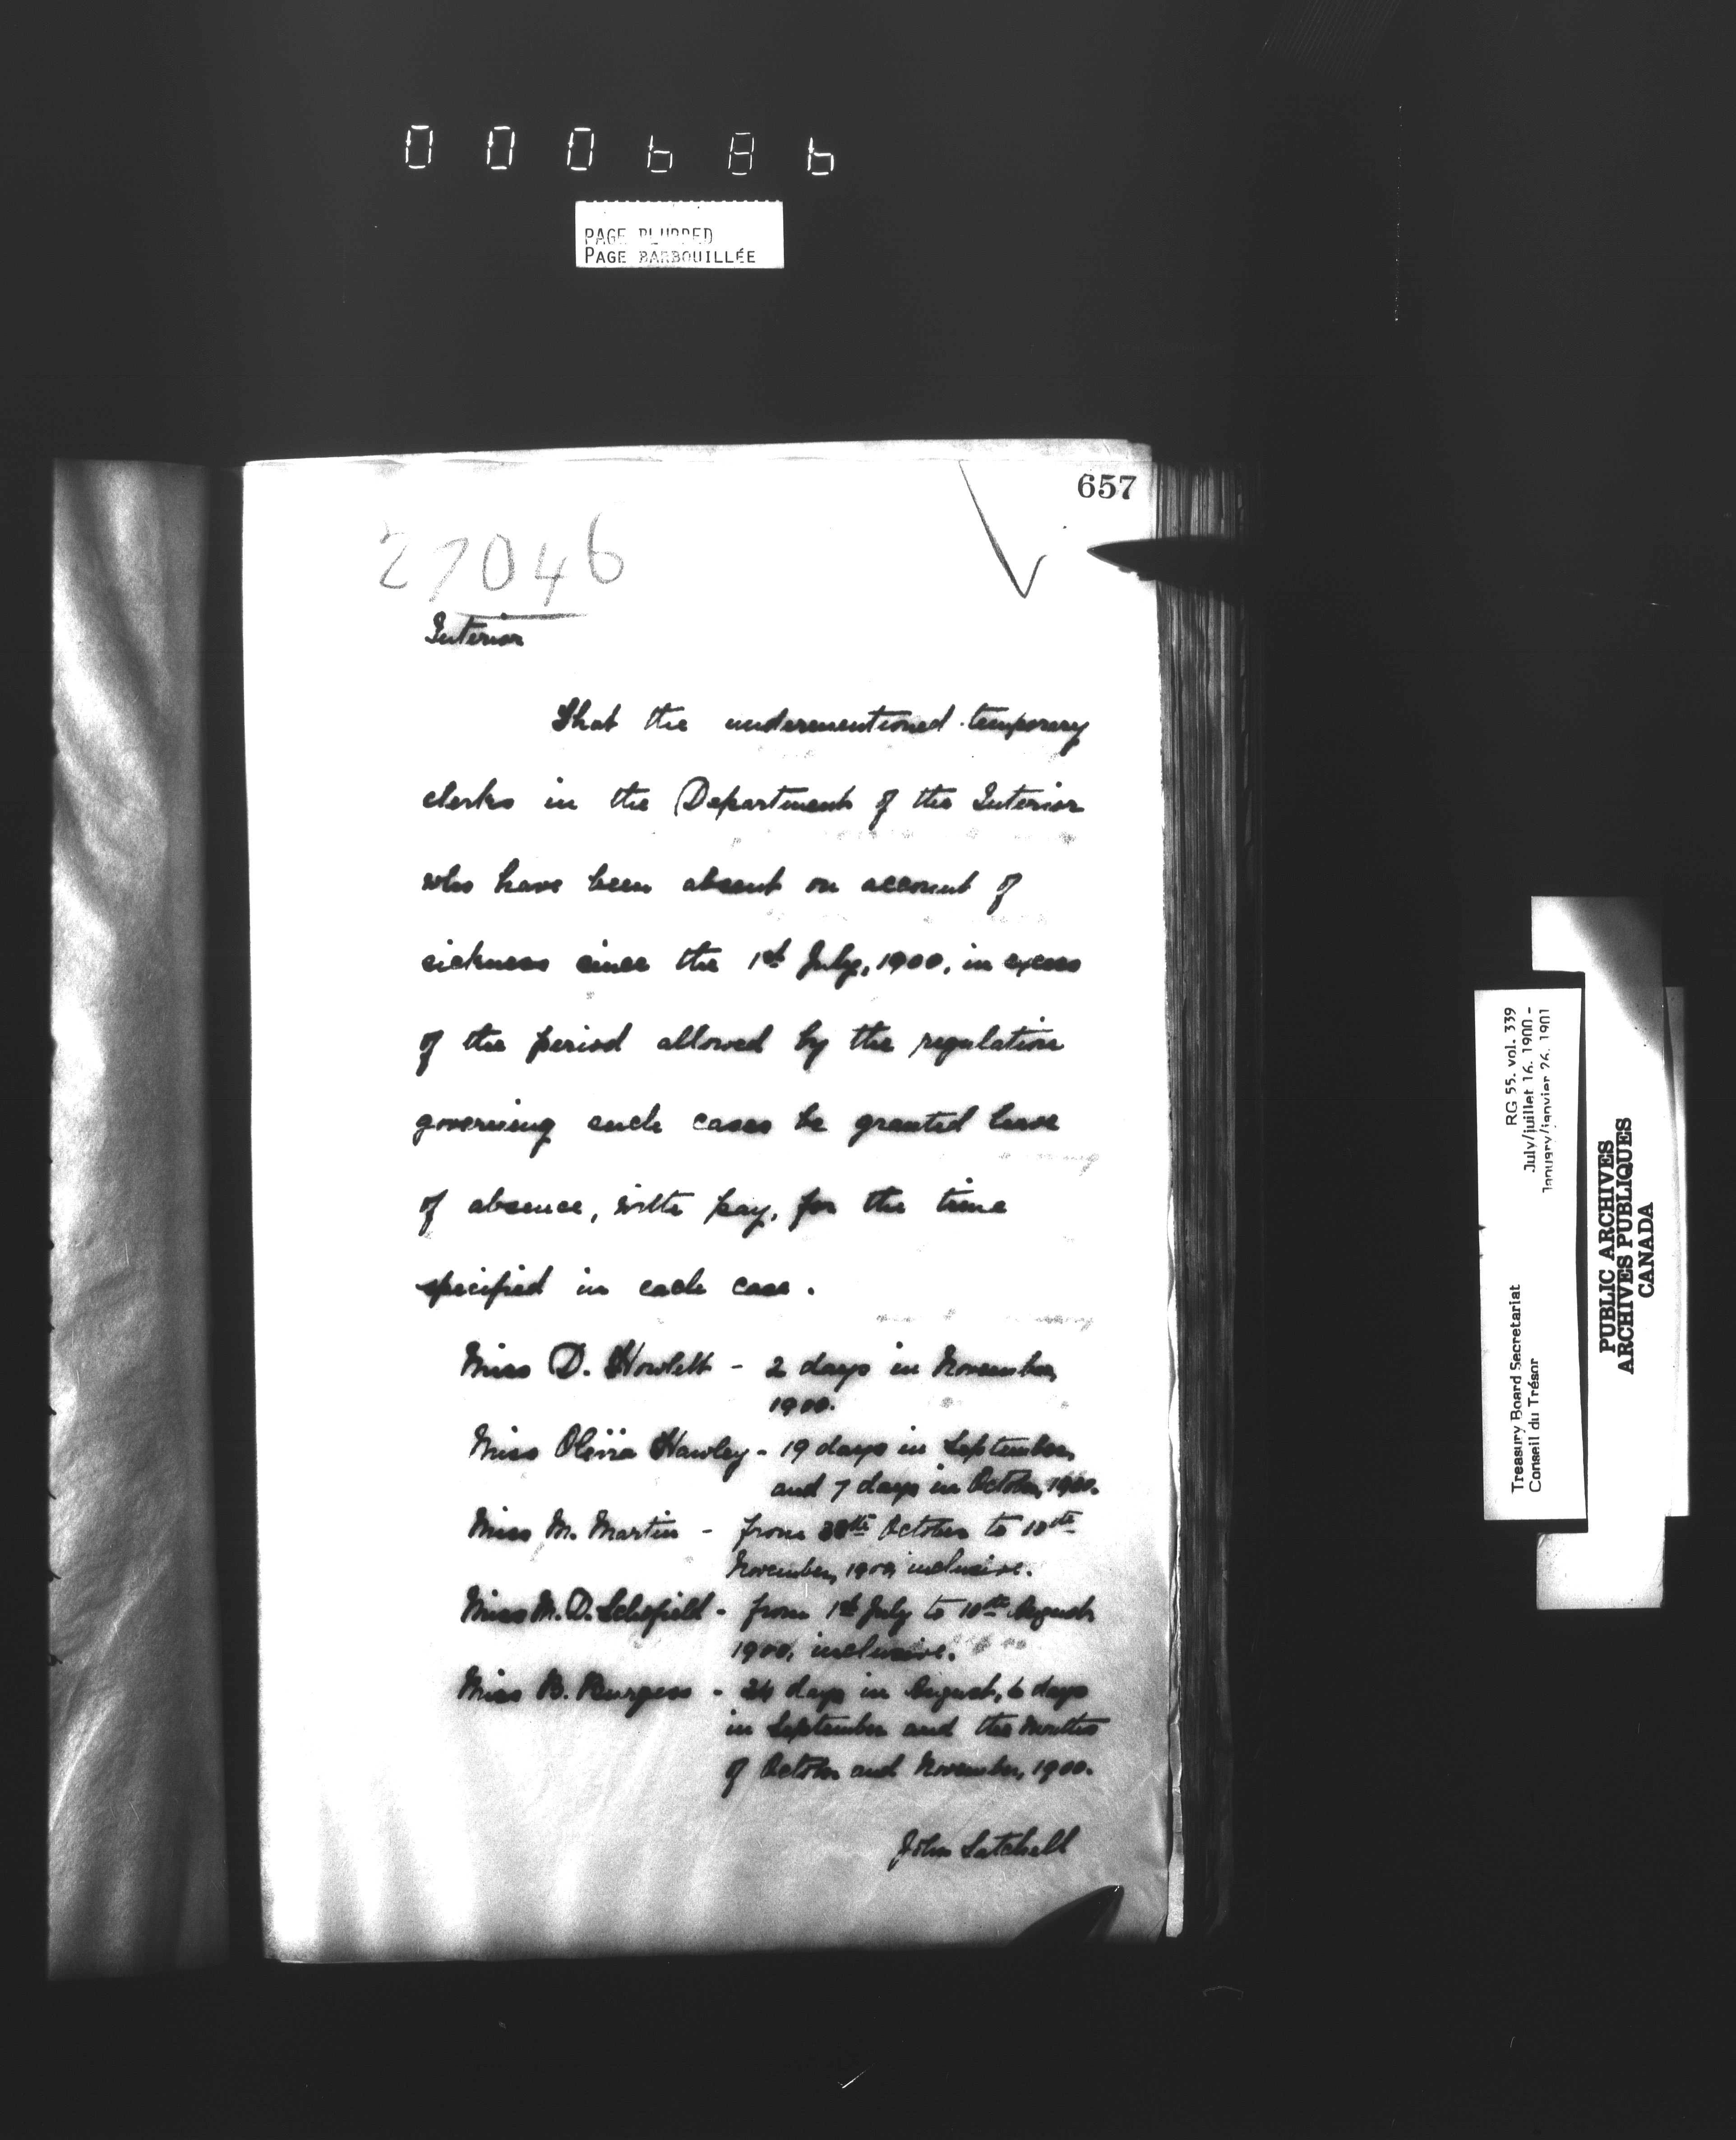 000686
PAGE BLURRED
PAGE BARBOUILLÉE
657
27046
Interior
That the undermentioned temporary
clerks in the Department of the Interior
who have been absent on account of
sickness since the 1st July, 1900, in excess
of the period allowed by the regulation
governing such cases be granted leave
of absence, with pay, for the time
specified in each case.
Miss D. Howlett - 2 days in November,
1900.
Miss Olivia Hawley - 19 days in September,
and 7 days in October, 1900.
Miss M. Martin - from October to 10th
November, 1900, inclusive.
Miss M. D. Schofield - from 1st July to 10th August,
1900, inclusive.
Miss B. Burgess - 24 days in August, 6 days
in September and the months
of October and November, 1900.
John Satchell
RG 55. vol. 339
July/juillet 16, 1900 -
January/janvier 26, 1901
Treasury Board Secretariat
Conseil du Trésor
PUBLIC ARCHIVES
ARCHIVES PUBLIQUES
CANADA